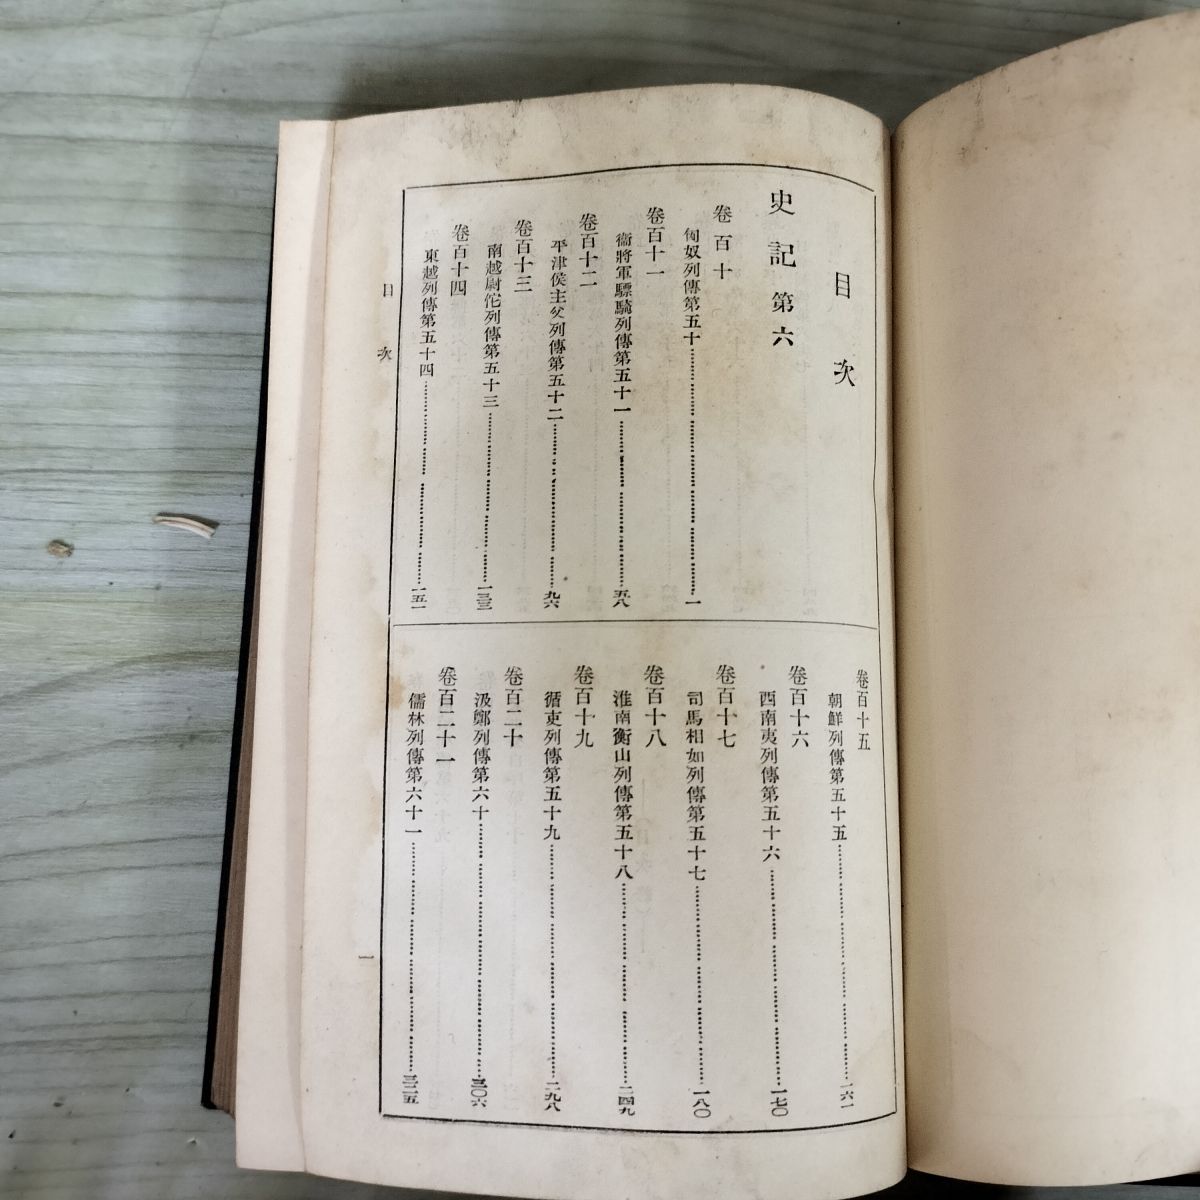 目次
史記第六
卷百十
匈奴列傳第五十………一
卷百十一
衞將軍驃騎列傳第五十一………五八
卷百十二
平津侯主父列傳第五十二………九六
卷百十三
南越尉佗列傳第五十三………一三三
卷百十四
東越列傳第五十四………一五一
卷百十五
朝鮮列傳第五十五………一六一
卷百十六
西南夷列傳第五十六………一七〇
卷百十七
司馬相如列傳第五十七………一八〇
卷百十八
淮南衡山列傳第五十八………二四九
卷百十九
循吏列傳第五十九………二九八
卷百二十
汲鄭列傳第六十………三〇六
卷百二十一
儒林列傳第六十一………三二五
目次
一